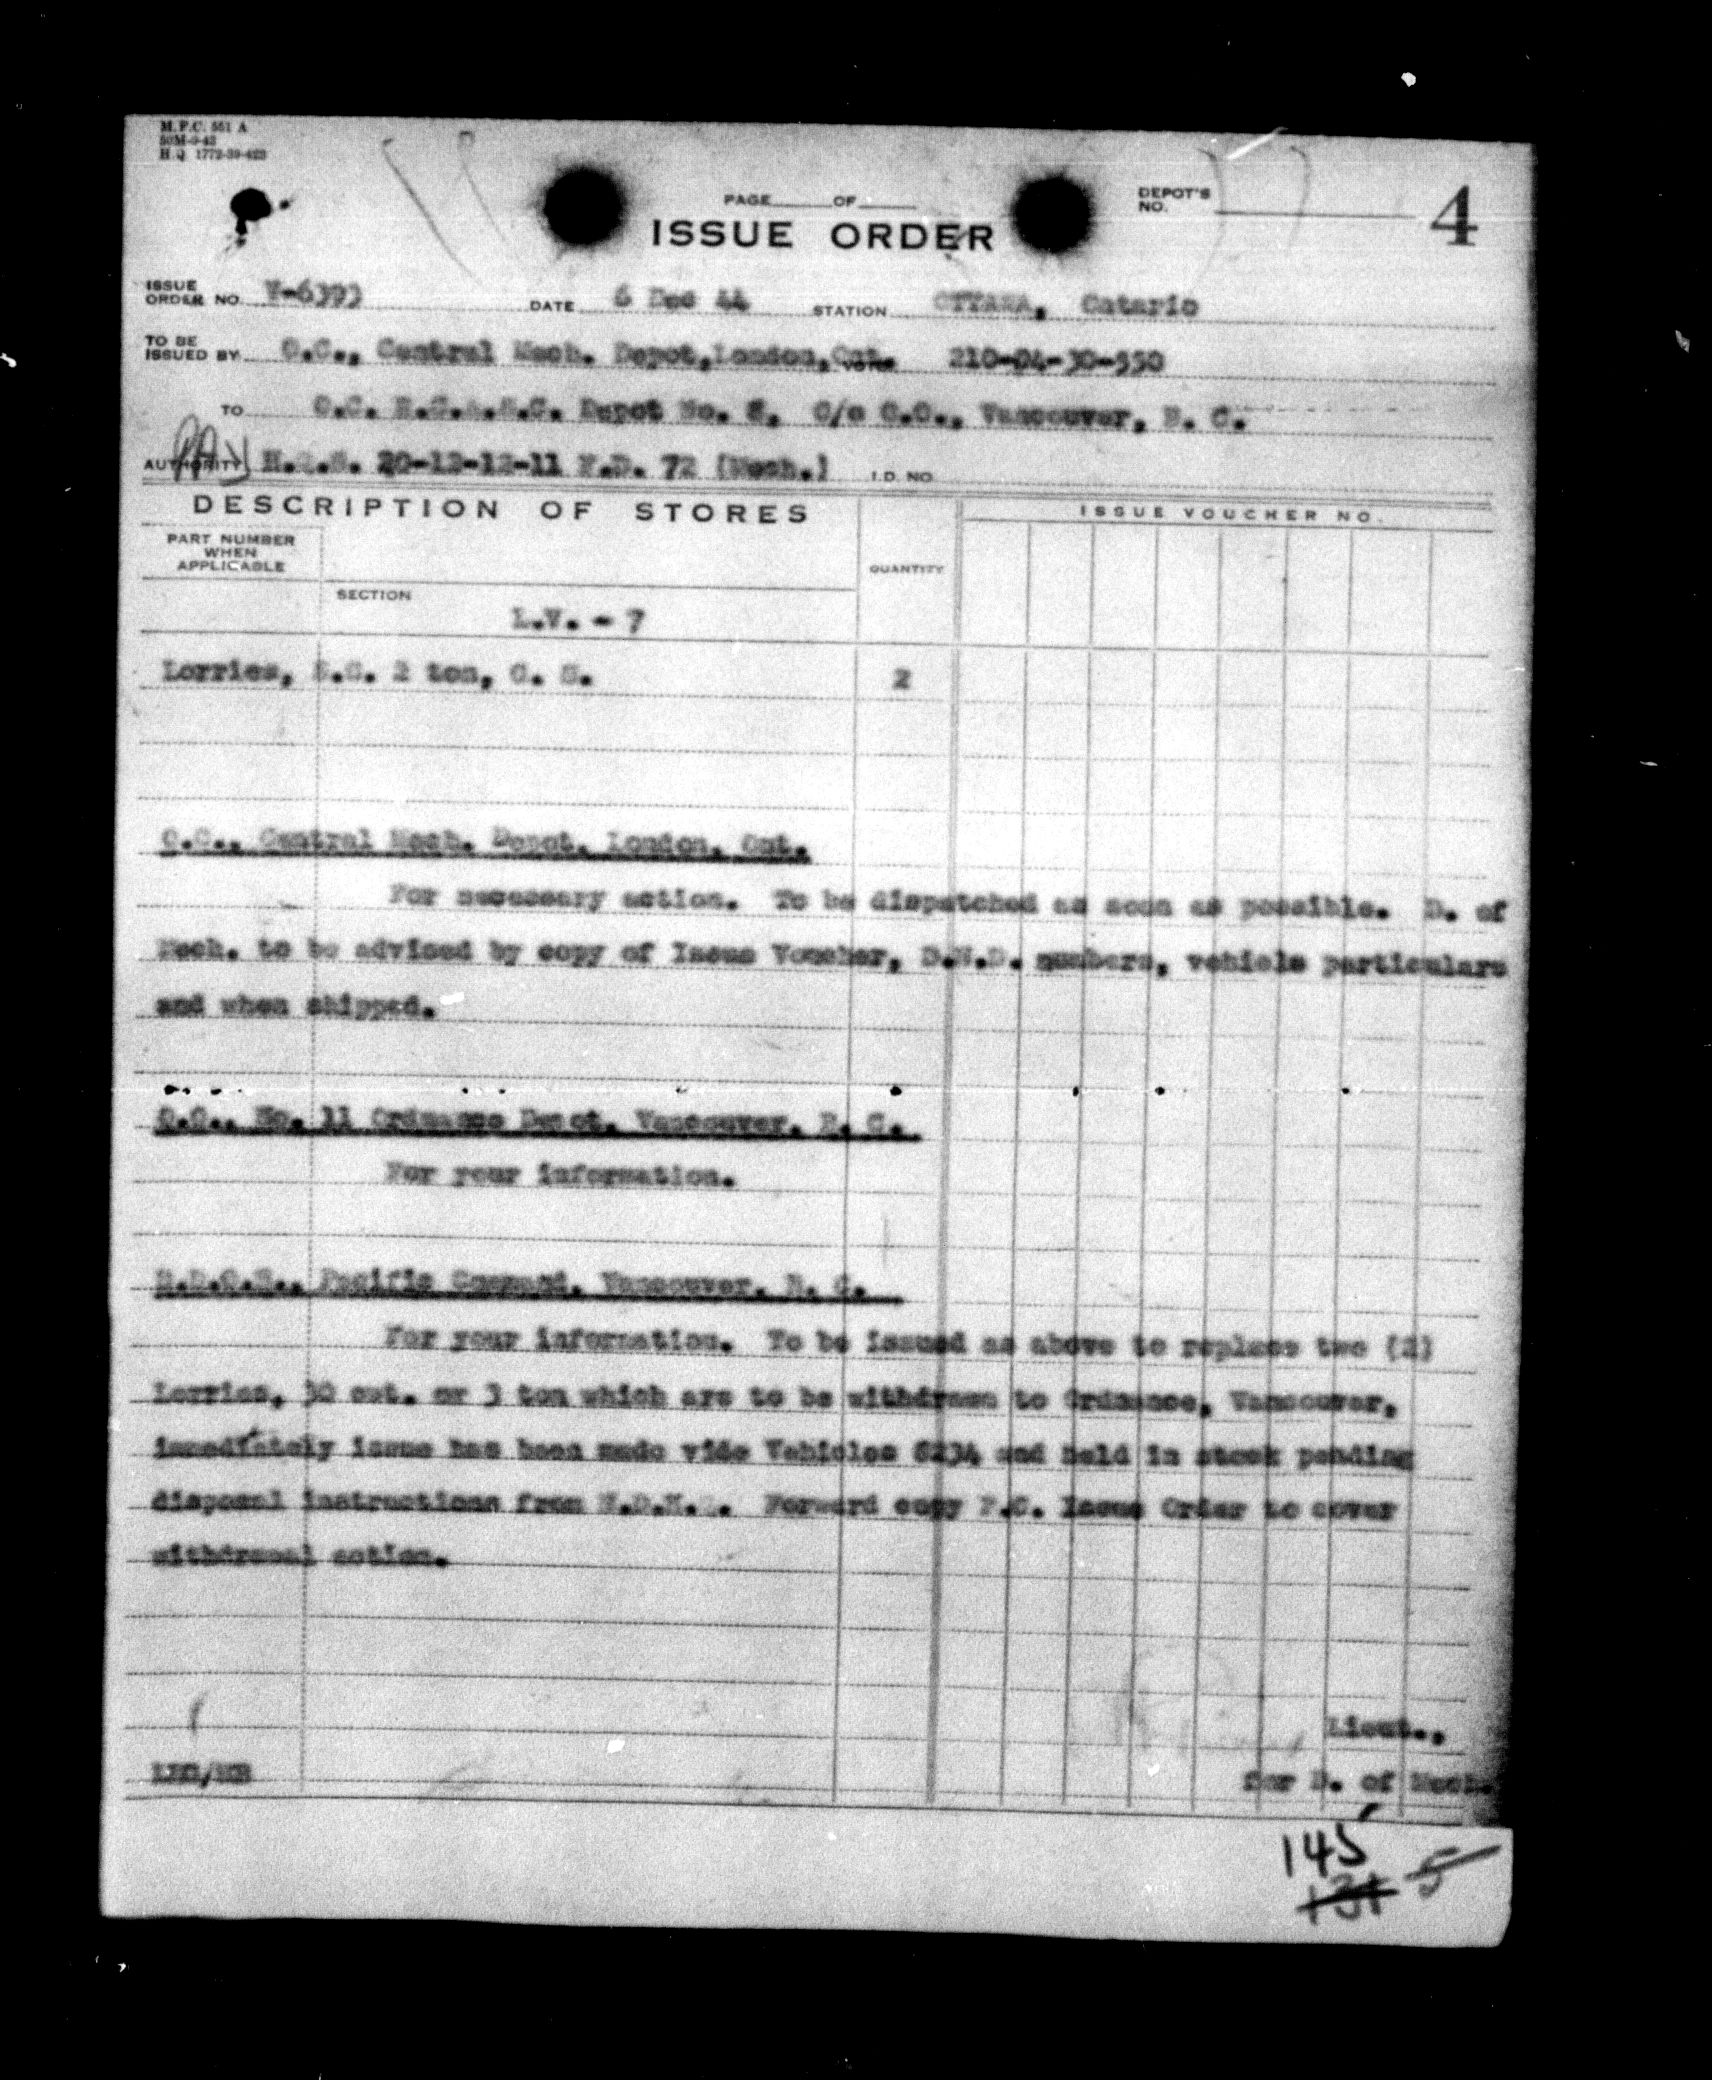 M.F.C. 551 A
50M-9-42
H.Q. 1772-39-423
PAGE OF
DEPOT'S
NO.
4
ISSUE ORDER
ISSUE
ORDER NO. V-6393 DATE 6 Dec 44 STATION OTTAWA, Ontario
TO BE
ISSUED BY O.C., Central Mech. Depot, London, Ont. VOTE 210-04-30-550
TO O.C. R.C.A.S.C. Depot No. 8, C/o O.O., Vancouver, B. C.
AUTHORITY H.Q.S. 20-12-12-11 F.D. 72 (Mech.) I.D. NO.
DESCRIPTION OF STORES
ISSUE VOUCHER NO.
PART NUMBER
WHEN
APPLICABLE
QUANTITY
SECTION
L.V. - 7
Lorries, 2 ton, G. S. 2
O.C., Central Mech. Depot, London, Ont.
For necessary action. To be dispatched as soon as possible. D. of
Mech. to be advised by copy of Issue Voucher, D.N.D. numbers, vehicle particulars
and when shipped.
O.O., No. 11 Ordnance Depot, Vancouver, B. C.
For your information.
Pacific Command, Vancouver, B. C.
For your information. To be issued as above to replace two (2)
Lorries, 30 cwt. or 3 ton which are to be withdrawn to Ordnance, Vancouver,
immediately issue has been made vide Vehicles 8234 and held in stock pending
disposal instructions from N.D.H.Q. Forward copy P.C. Issue Order to cover
withdrawal action.
Lieut.,
for D. of Mech.
145
131
5